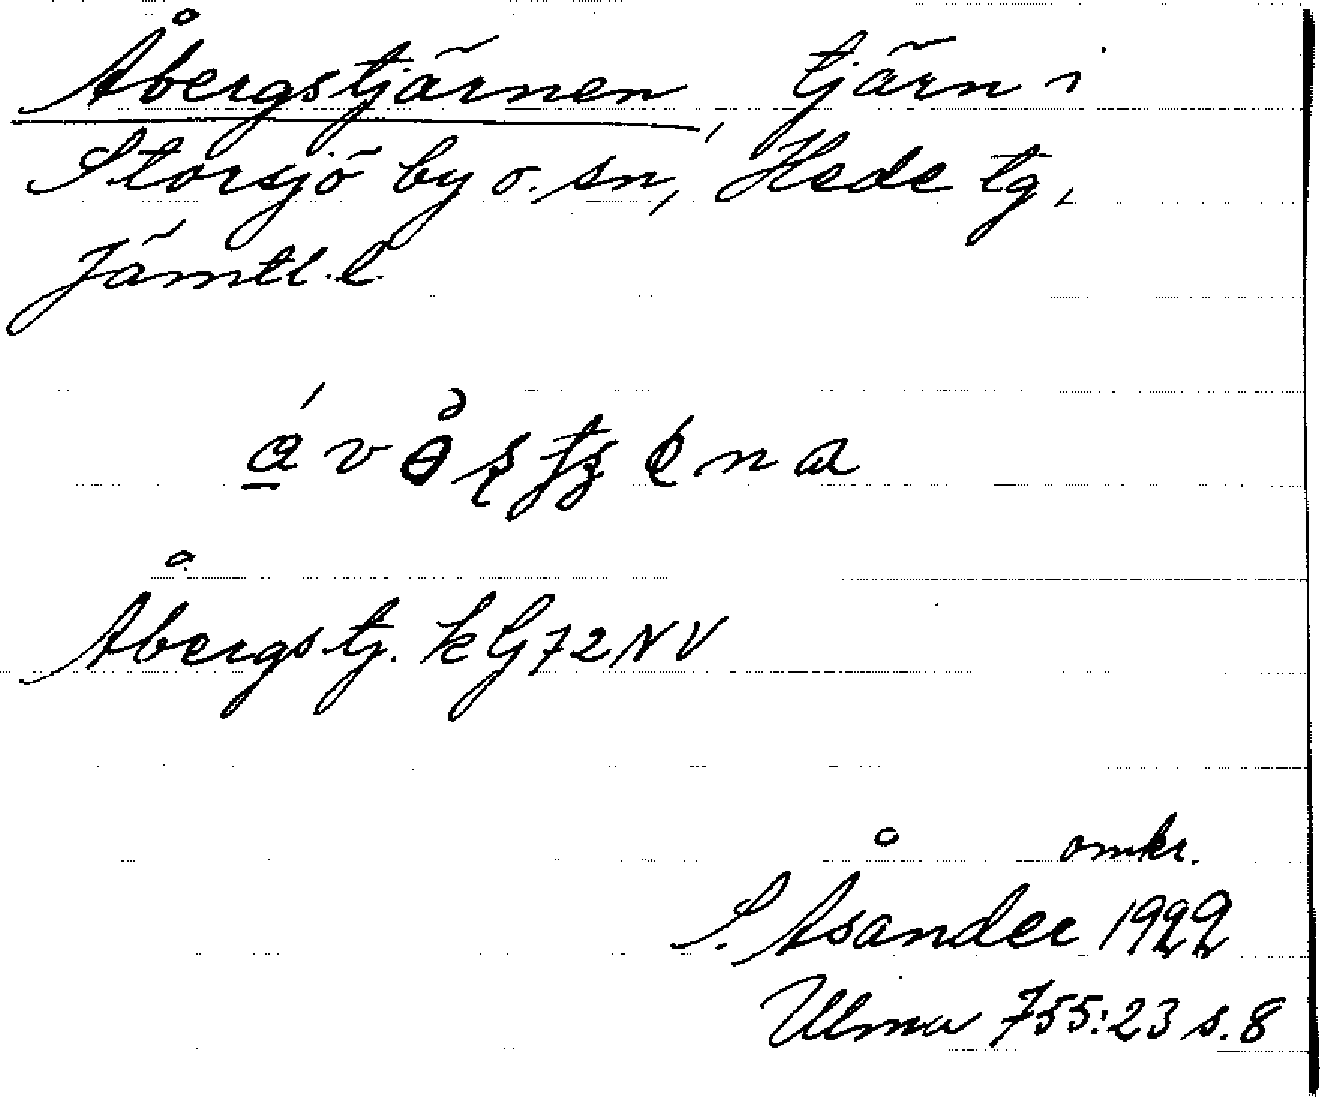 Åbergstjärnen, tjärn i
Storsjö by o. sn, Hede tg,
Jämtl. l.
Åbergstj. k Gj 72 NV
omkr.
S. Åsander 1922
Ulma 755:23 s. 8